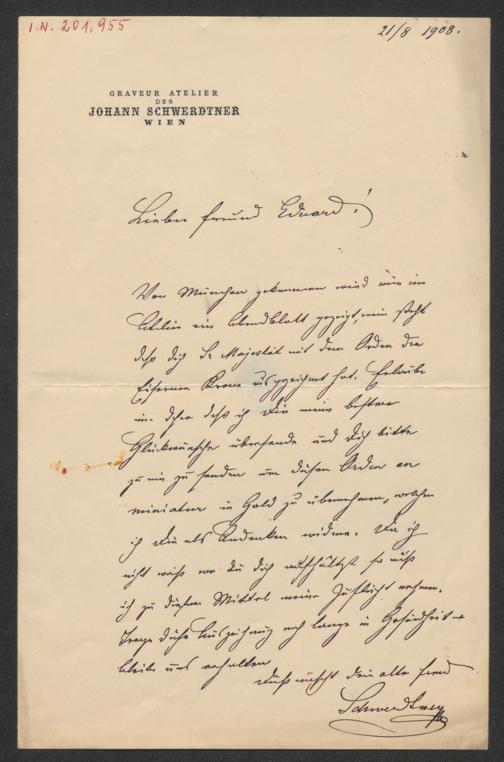 I.N. 201.955
21/8 1908.
GRAVEUR ATELIER
DES
JOHANN SCHWERDTNER
WIEN
Lieber Freund Eduard!
Von München gekommen wird mir im
Atelier ein Abendblatt gezeigt, worin steht
daß dich Se Majestät mit dem Orden der
Eisernen Krone ausgezeichnet hat. Erlaube
mir daher daß ich Dir meine besten
Glückwünsche übersende und Dich bitte
zu mir zu senden um diesen Orden en
miniatur in Gold zu übernehmen, welchen
ich Dir als Andenken widme. Da ich
nicht weiß wo du dich aufhältst so muß
ich zu diesem Mittel meine Zuflucht nehmen.
Trage diese Auszeichnung noch lange in Gesundheit
bleibe uns erhalten
Dieß wünscht dein alter Freund
Schwerdtner